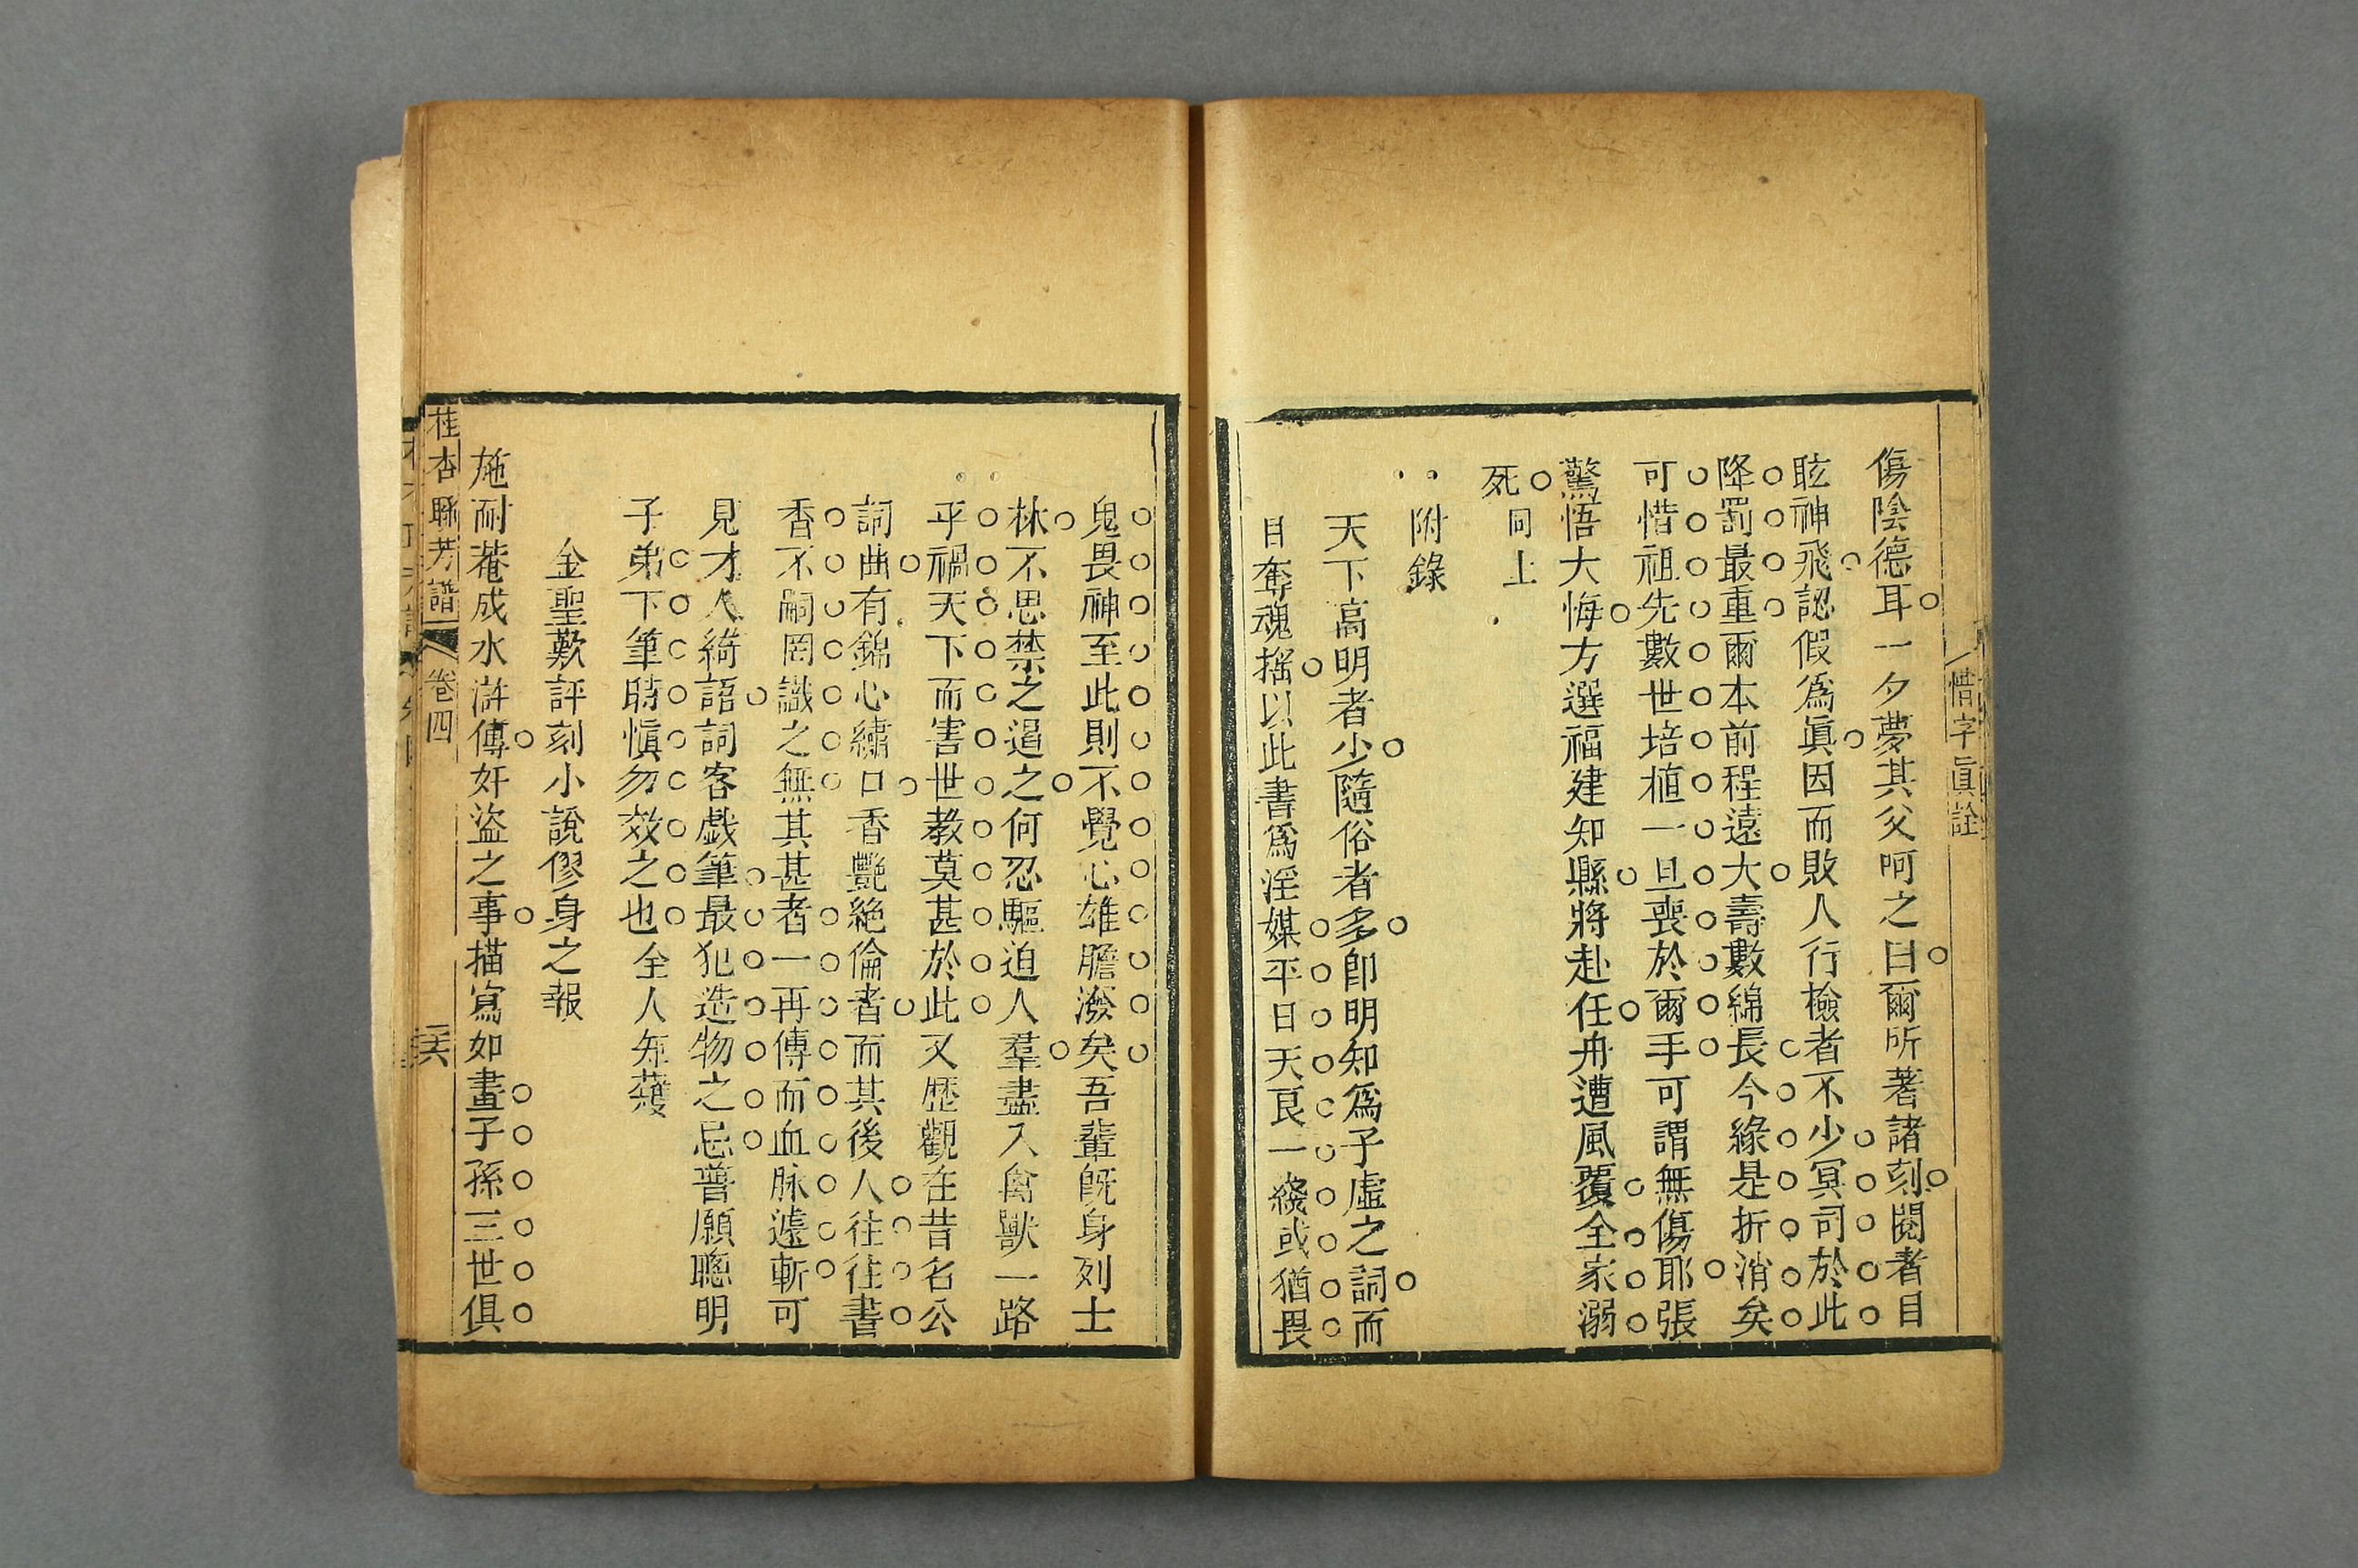 惜字眞詮
傷陰德耳一夕夢其父呵之曰爾所著諸刻閱者目
眩神飛認假爲眞因而敗人行檢者不少冥司於此
降罰最重爾本前程遠大壽數綿長今緣是折消矣
可惜祖先數世培植一旦喪於爾手可謂無傷耶張
驚悟大悔方選福建知縣將赴任舟遭風覆全家溺
死同上
附錄
天下高明者少隨俗者多卽明知爲子虛之詞而
目奪魂搖以此書爲淫媒平日天良一綫或猶畏
鬼畏神至此則不覺心雄膽潑矣吾輩旣身列士
林不思禁之遏之何忍驅迫人羣盡入禽獸一路
乎禍天下而害世敎莫甚於此又歷觀在昔名公
詞曲有錦心繡口香艷絕倫者而其後人往往書
香不嗣罔識之無其甚者一再傳而血脉遽斬可
見才人綺語詞客戲筆最犯造物之忌普願聰明
子弟下筆時愼勿效之也全人矩矱
金聖歎評刻小說僇身之報
施耐菴成水滸傳奸盜之事描寫如畫子孫三世俱
桂杏聯芳譜
卷四